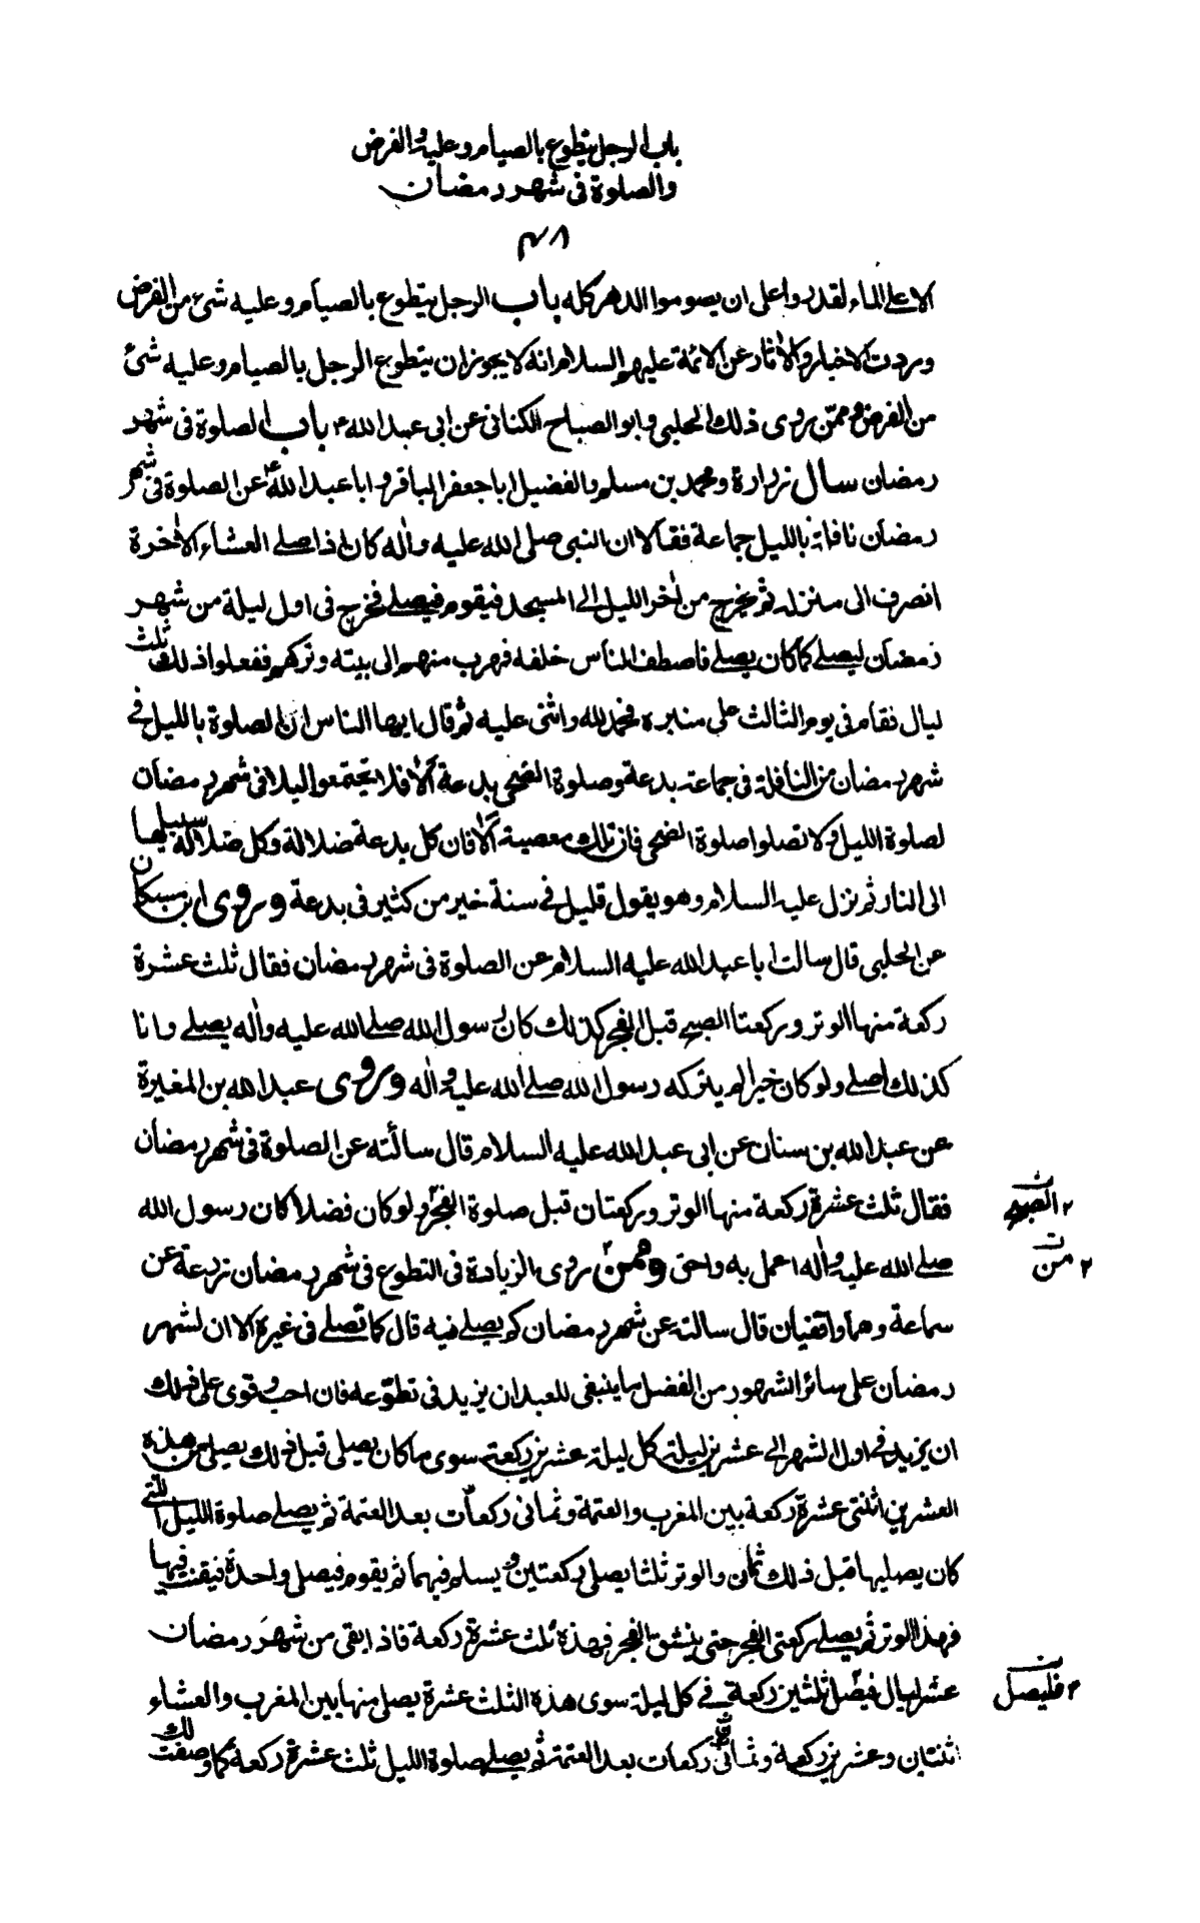 باب الرجل يتطوع بالصيام وعليه الفرض
والصلوة فى شهر رمضان
٤٨
الا على الماء لقدروا على ان يصوموا الدهر كله باب الرجل يتطوع بالصيام وعليه شئ من الفرض
وردت الاخبار والاٰثار عن الائمة عليهم السلام انه لا يجوز ان يتطوع الرجل بالصيام وعليه شئ
من الفرض وممّن روى ذلك الحلبى وابو الصباح الكنانى عن ابى عبد الله ع باب الصلوة فى شهر
رمضان سال زرارة ومحمد بن مسلم والفضيل ابا جعفر الباقر و ابا عبد الله ع عن الصلوة فى شهر
رمضان نافلة بالليل جماعة فقالا ان النبى صلى الله عليه واٰله كان اذا صلے العشاء الاٰخرة
انصرف الى منزله ثم يخرج من اٰخر الليل الى المسجد فيقوم فيصلے فخرج فى اول ليلة من شهر
رمضان ليصلے كما كان يصلے فاصطف الناس خلفه فهرب منهم الى بيته وتركهم ففعلوا ذلك ثلث
ليال فقام فى يوم الثالث على منبره فحمد الله واثنى عليه ثم قال ايها الناس ان الصلوة بالليل فے
شهر رمضان من النافلة فى جماعة بدعة وصلوة الضحى بدعة الا فلا تجتمعوا ليلا فى شهر رمضان
لصلوة الليل ولا تصلوا صلوة الضحى فان تلك معصية الا فان كل بدعة ضلالة وكل ضلالة سبيلها
الى النار ثم نزل عليه السلام وهو يقول قليل فے سنة خير من كثير فى بدعة وروى ابن مسكان
عن الحلبى قال سالت ابا عبد الله عليه السلام عن الصلوة فى شهر رمضان فقال ثلث عشرة
ركعة منها الوتر وركعتا الصبح قبل الفجر كذلك كان رسول الله صلے الله عليه واٰله يصلے وانا
كذلك اصلے ولو كان خيرا لم يتركه رسول الله صلے الله عليه واٰله وروى عبد الله بن المغيرة
عن عبد الله بن سنان عن ابى عبد الله عليه السلام قال سالته عن الصلوة فى شهر رمضان
فقال ثلث عشرة ركعة منها الوتر وركعتان قبل صلوة الفجر٢ ولو كان فضلا كان رسول الله
صلے الله عليه واٰله اعمل به واحق وممن٢ روى الزيادة فى التطوع فى شهر رمضان زرعة عن
سماعة وهما واقفيان قال سالته عن شهر رمضان كم يصلے فيه قال كما تصلے فى غيره الا ان لشهر
رمضان على سائر الشهور من الفضل ما ينبغى للعبد ان يزيد فى تطوّعه فان احب وقوى على ذلك
ان يزيد فے اول الشهر الے عشرين ليلة كل ليلة عشرين ركعة سوى ما كان يصلى قبل ذلك يصلى من هذه
العشرين اثنتى عشرة ركعة بين المغرب والعتمة وثمانى ركعات بعد العتمة ثم يصلے صلوة الليل التے
كان يصليها قبل ذلك ثمان والوتر ثلثا يصلى ركعتين ويسلم فيهما ثم يقوم فيصلى واحدة فيقنت فيها
فهذا الوتر ثم يصلے ركعتى الفجر حتى ينشق الفجر فهذه ثلث عشرة ركعة فاذا بقى من شهر رمضان
عشر ليال فيصل ثلثين ركعة فے كل ليلة سوى هذه الثلث عشرة يصلى منها بين المغرب والعشاء
اثنتان وعشرين ركعة وثمانى ركعات بعد العتمة ثم يصلے صلوة الليل ثلث عشرة ركعة كما وصفت لك
٢ الصبح
٢ من
٢ فليصل